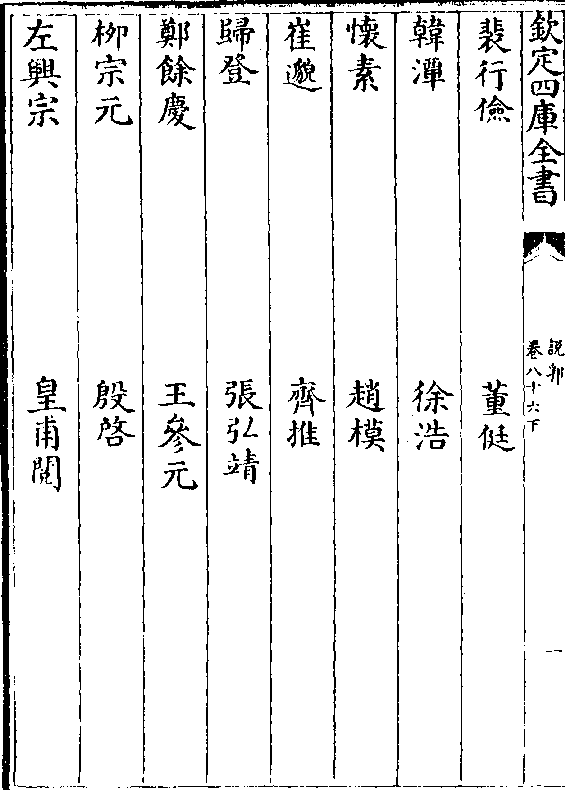 欽定四庫全書
說郛
卷八十六下
一
裴行儉 董侹
韓潬 徐浩
懷素 趙模
崔邈 齊推
歸登 張弘靖
鄭餘慶 王參元
柳宗元 殷啓
左興宗 皇甫閱